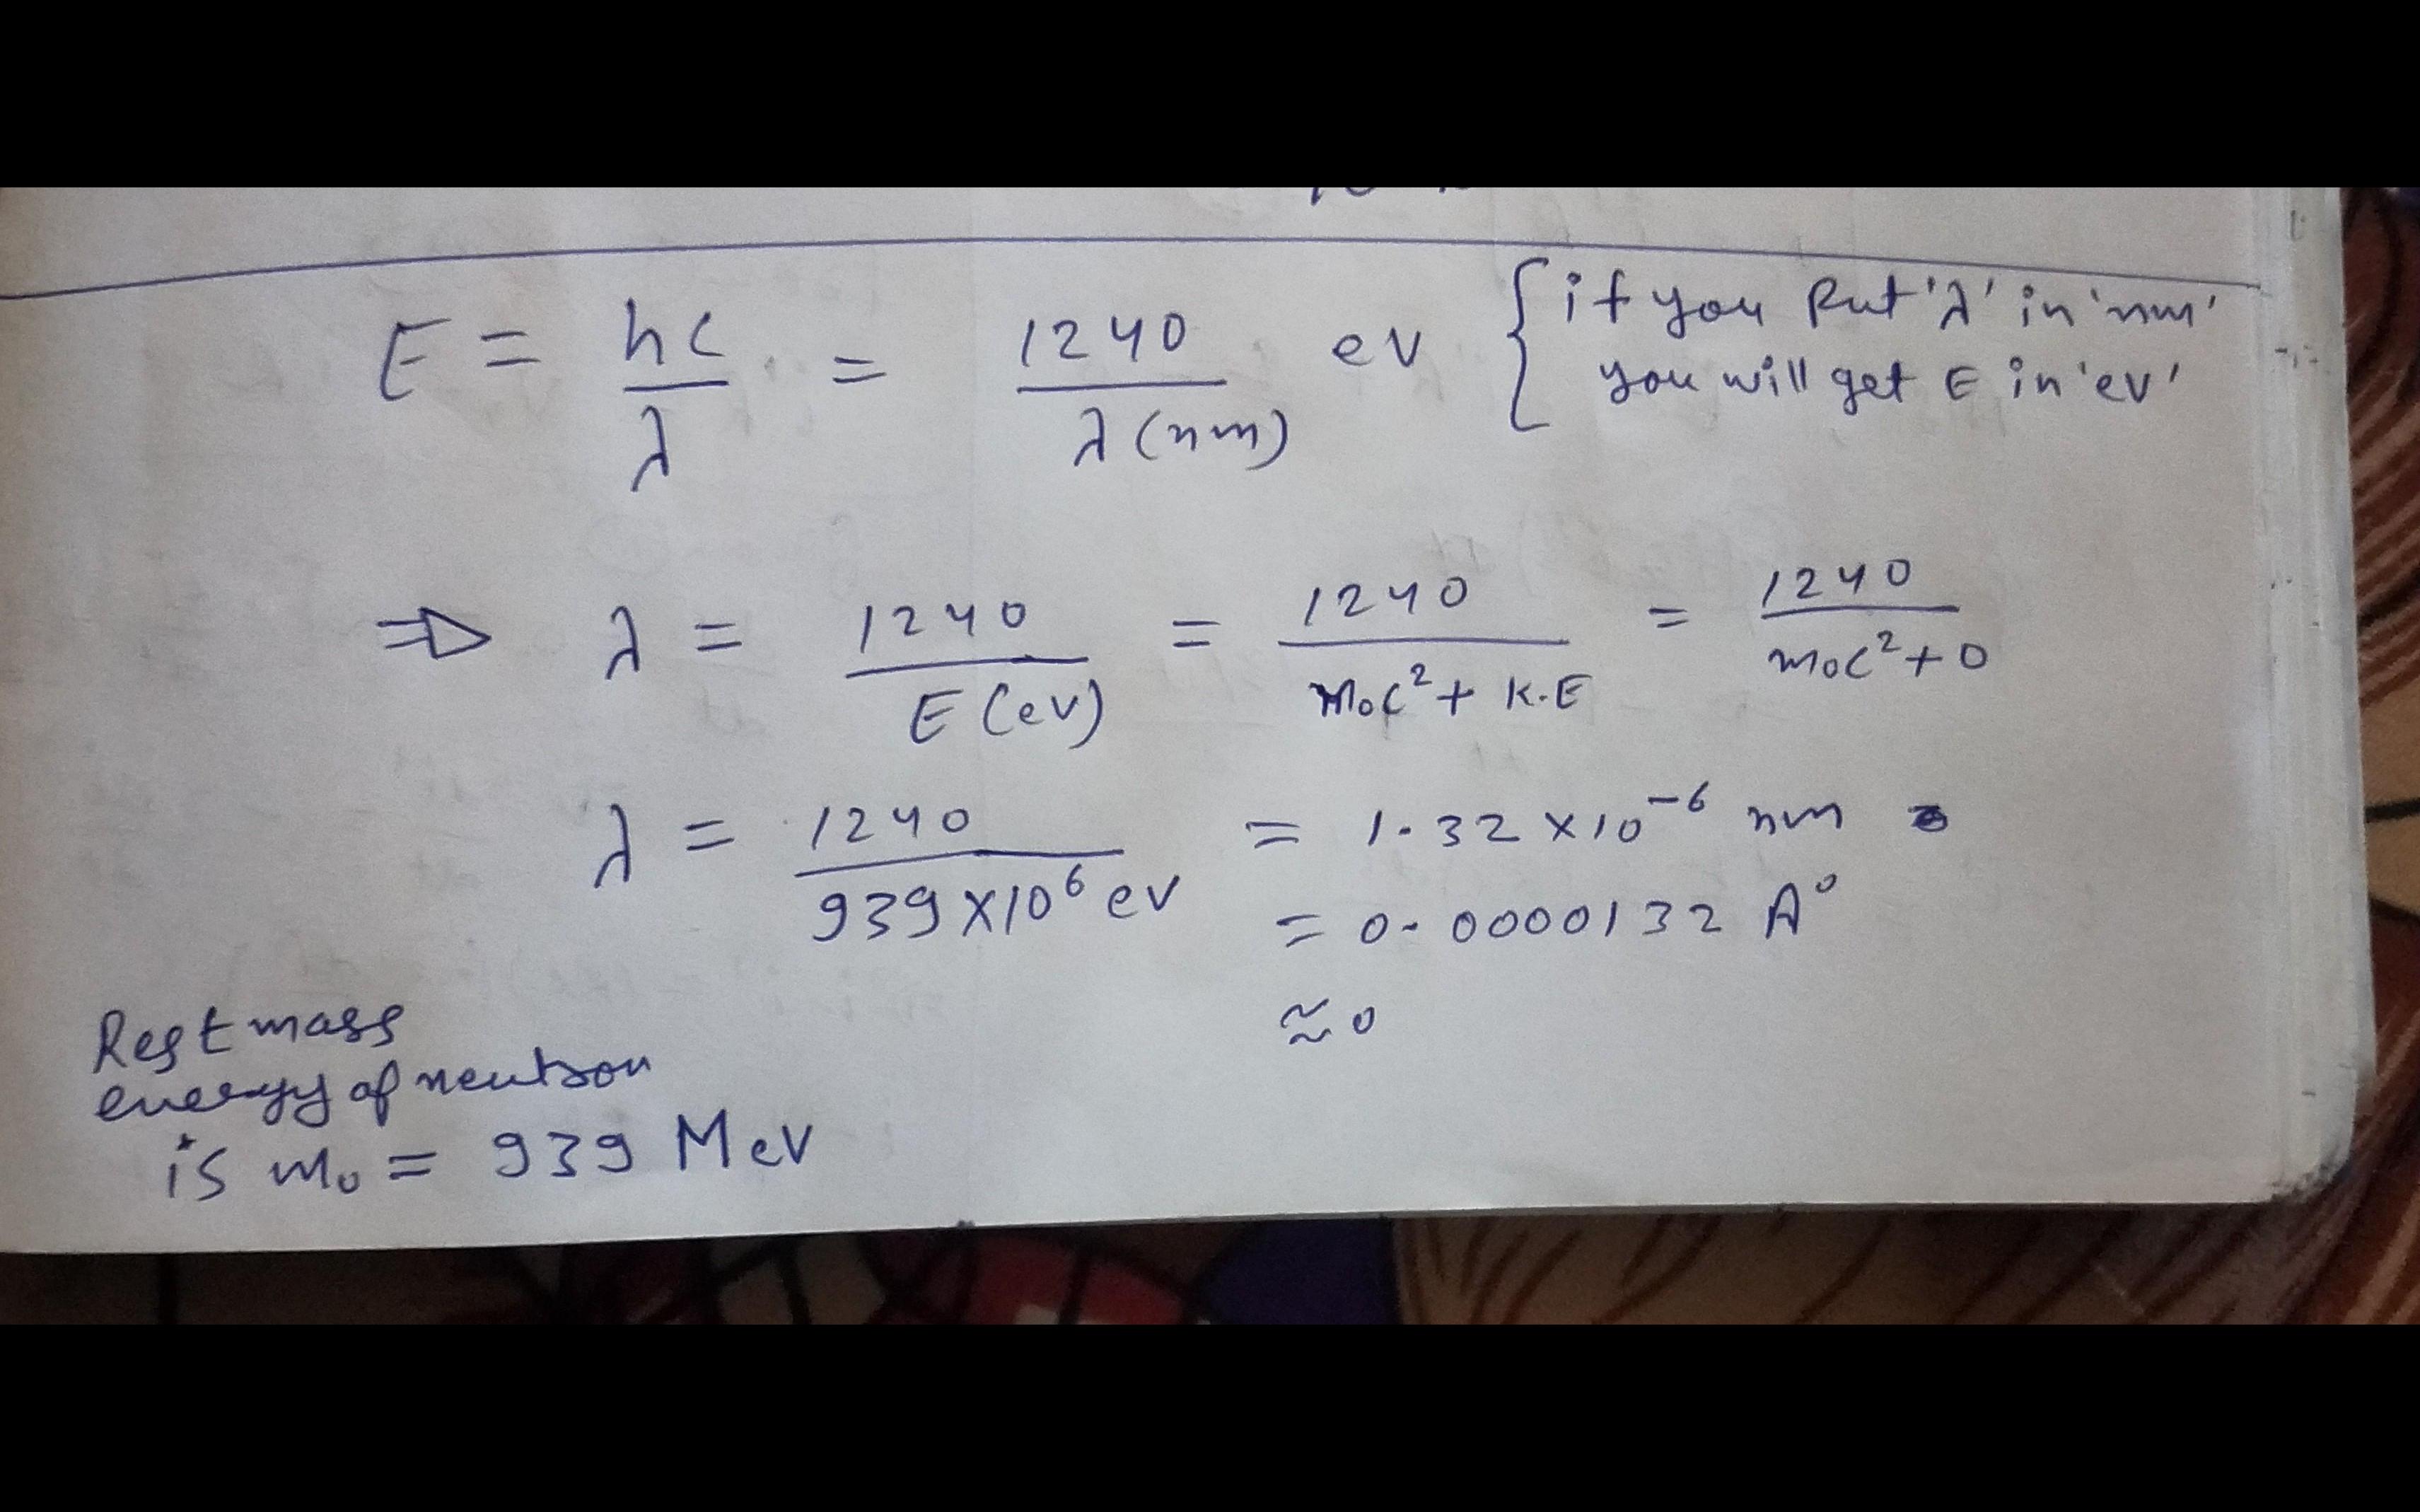 E = hc/λ = 1240/λ(nm) ev { if you Put 'λ' in 'nm'
you will get E in 'ev'
⇒ λ = 1240/E(ev) = 1240/m₀c²+ K.E = 1240/m₀c²+0
λ = 1240/939×10⁶ ev = 1.32×10⁻⁶ nm
= 0.0000132 A°
≈ 0
Rest mass
energy of neutron
is m₀ = 939 MeV